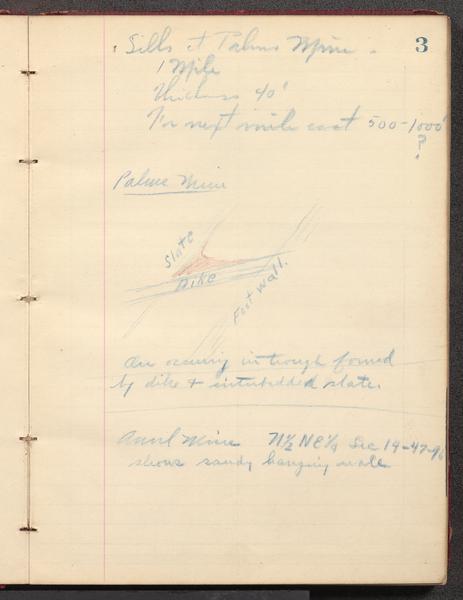 3
Sills at Palms Mine.
1 Mile
Thickness 40'
For next mile east 500-1000'
?
Palms Mine
Slate
Dike
Foot wall.
Ore occuring in trough formed
by dike + interbedded slate.
Anvil Mine N½ NE¼ Sec 14-47-46
shows sandy hanging wall